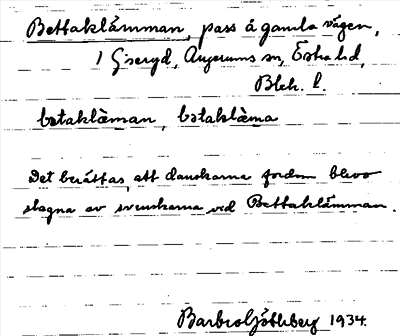 Bettaklämman, pass å gamla vägen,
1 G:seryd, Asarums sn, Bräkne hd,
Blek. l.
bətaklɛ̀man, bətaklɛ̀ma
Det berättas, att danskarna fordom blevo
slagna av svenskarna vid Bettaklämman.
Barbro Götlberg 1934.